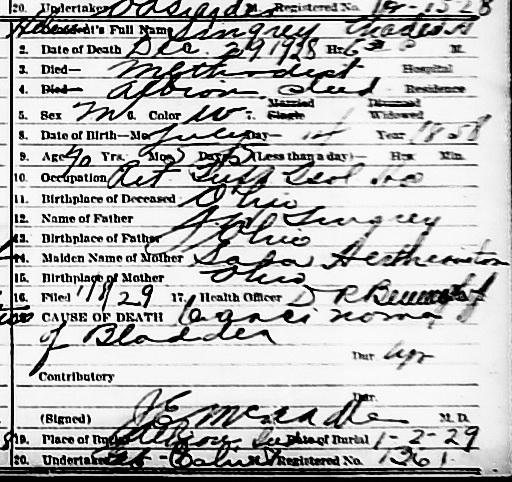 20. Undertaker M. Registered No. 1215-28
Decedent's Full Name Singrey Thades A
2. Date of Death Dec. 29 1928 Hr. 6 30 P M.
3. Died— Methodist Hospital
4. Died— Albion Ind Residence
5. Sex M 6. Color W 7. Married Single Divorced Widowed
8. Date of Birth—Mo. July Day— 14 Year 1858
9. Age 70 Yrs. Mos. 5 Days 15 (Less than a day)— Hrs. Min.
10. Occupation Ret.
11. Birthplace of Deceased Ohio
12. Name of Father Singrey
13. Birthplace of Father Ohio
14. Maiden Name of Mother Sara
15. Birthplace of Mother Ohio
16. Filed 1/8/29 17. Health Officer D R
18. CAUSE OF DEATH Carcinoma
of Bladder
Dur. 4 yr
Contributory
Dur.
(Signed) J E McCardle M. D.
19. Place of Burial Albion, Ind Date of Burial 1-2-29
20. Undertaker Registered No. 1361